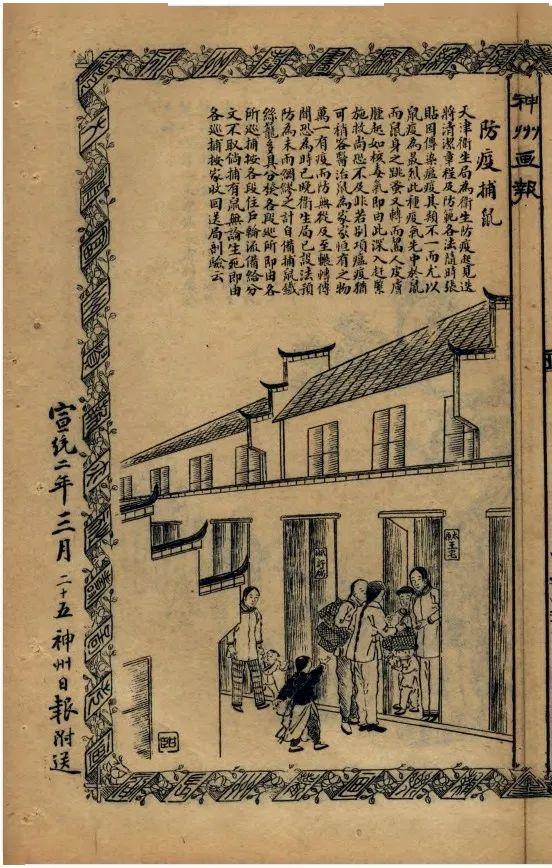 神州画報
防疫捕鼠
天津衛生局為衛生防疫起見迭
將清潔章程及防範各法隨時張
貼因傳染瘟疫其類不一而尤以
鼠疫為最烈此種疫氣先中於鼠
而鼠身之跳蚤又轉而嚙人皮膚
腫起如核毒氣即由此深入赶緊
施救尚恐不及非若別項瘟疫猶
可稍容醫治鼠為家家恒有之物
萬一有疫而防無從及至輾轉傳
聞恐為時已晚衛生局已設法預
防為未雨綢繆之計自備捕鼠鐵
絲籠多具分發各段巡所即由各
所巡捕按各段住戶輪流備給分
文不取倘捕有鼠無論生死即由
各巡捕按家收回送局剖驗云
王宅
宣統二年三月二十五神州日報附送